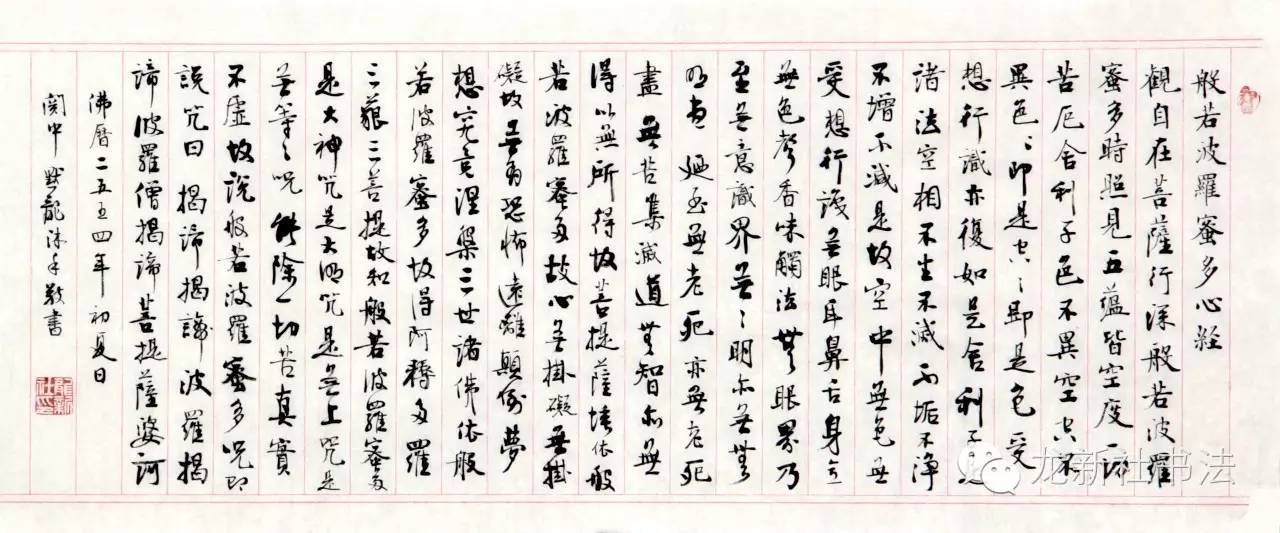 般若波羅蜜多心經
觀自在菩薩行深般若波羅
蜜多時照見五蘊皆空度一切
苦厄舍利子色不異空空不
異色〻即是空〻即是色受
想行識亦復如是舍利子是
諸法空相不生不滅不垢不淨
不增不減是故空中無色無
受想行識無眼耳鼻舌身意
無色聲香味觸法無眼界乃
至無意識界無〻明亦無無
明盡乃至無老死亦無老死
盡無苦集滅道無智亦無
得以無所得故菩提薩埵依般
若波羅蜜多故心無掛礙無掛
礙故無有恐怖遠離顛倒夢
想究竟涅槃三世諸佛依般
若波羅蜜多故得阿耨多羅
三藐三菩提故知般若波羅蜜多
是大神咒是大明咒是無上咒是
無等〻咒能除一切苦真實
不虛故說般若波羅蜜多咒即
說咒曰揭諦揭諦波羅揭
諦波羅僧揭諦菩提薩婆訶
佛曆二五五四年初夏日
関中默龍沐手敬書
龍新社印
龙新社书法